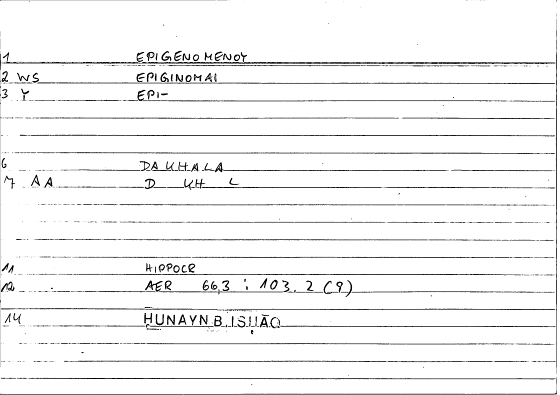 1 EPIGENOMENOY
2 WS EPIGINOMAI
3 Y EPI-
6 DAKHALA
7 AA D KH L
11 HIPPOCR
12 AER 66,3 : 103.2 (9)
14 HUNAYN B. ISḤĀQ